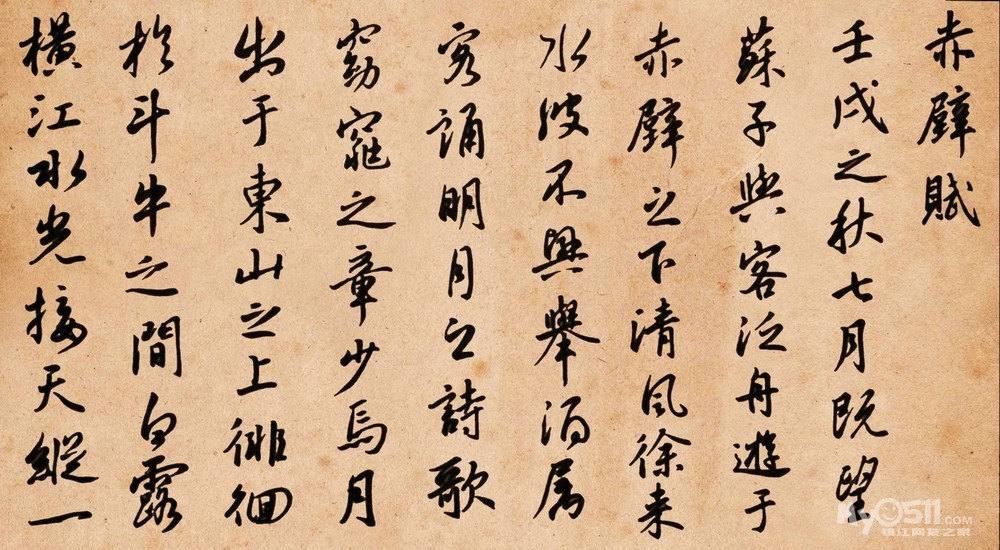 赤壁賦
壬戌之秋七月既望
蘇子與客泛舟遊于
赤壁之下清風徐来
水波不興舉酒属
客誦明月之詩歌
窈窕之章少焉月
出于東山之上徘徊
於斗牛之間白露
橫江水光接天縱一
my0511.com
镇江网友之家